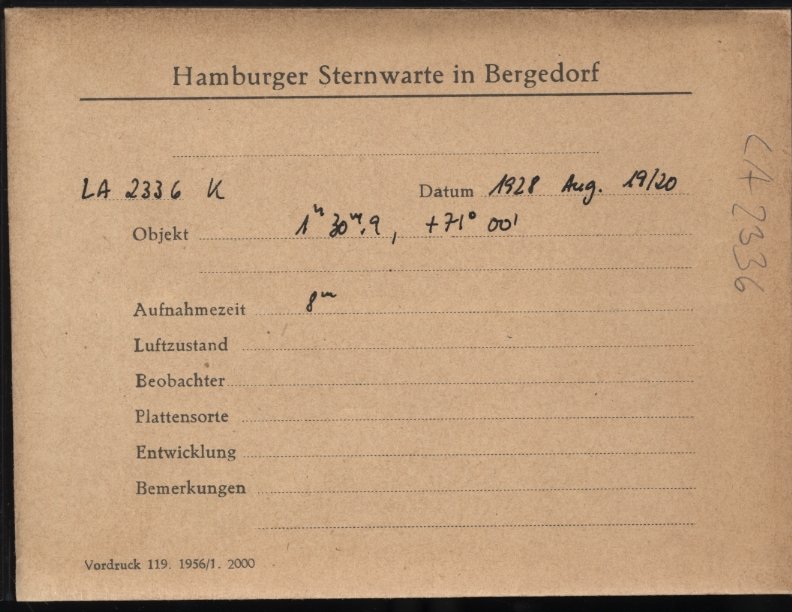 Hamburger Sternwarte in Bergedorf
LA 2336 K Datum 1928 Aug. 19/20
Objekt 1ʰ 30ᵐ.9, +71° 00'
Aufnahmezeit 8ᵐ
Luftzustand
Beobachter
Plattensorte
Entwicklung
Bemerkungen
Vordruck 119. 1956/1. 2000
LA 2336